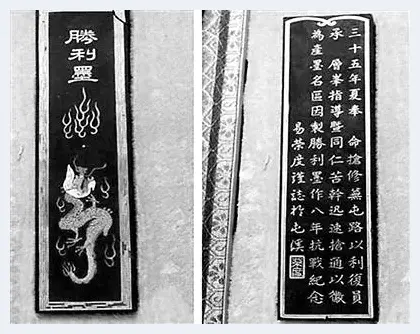 勝利墨
三十五年夏奉　命搶修蕪屯路以利復員
承　層峯指導暨同仁苦幹迅速搶通以徽
為產墨名區因製勝利墨作八年抗戰紀念
易榮度謹誌於屯溪